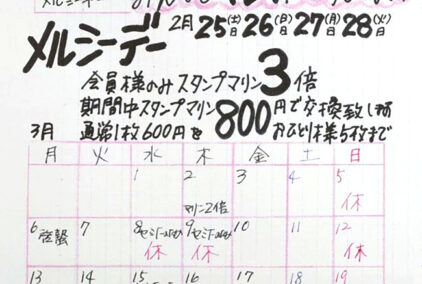 メルシーデー 2月25(土)日26(日)日27(月)日28(火)日
会員様のみスタンプマリン3倍
期間中スタンプマリン800円で交換致します
通常1枚600円を おひとり様5枚まで
3月
月 火 水 木 金 土 日
1 2 3 4 5
マリン2倍 休
6 啓蟄 7 8 9 10 11 12
休 休 休
13 14 15 16 17 18 19